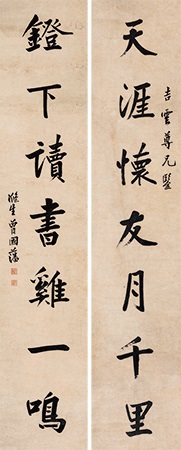 天涯懷友月千里
吉雲尊兄鑒
鐙下讀書雞一鳴
滌生曾國藩